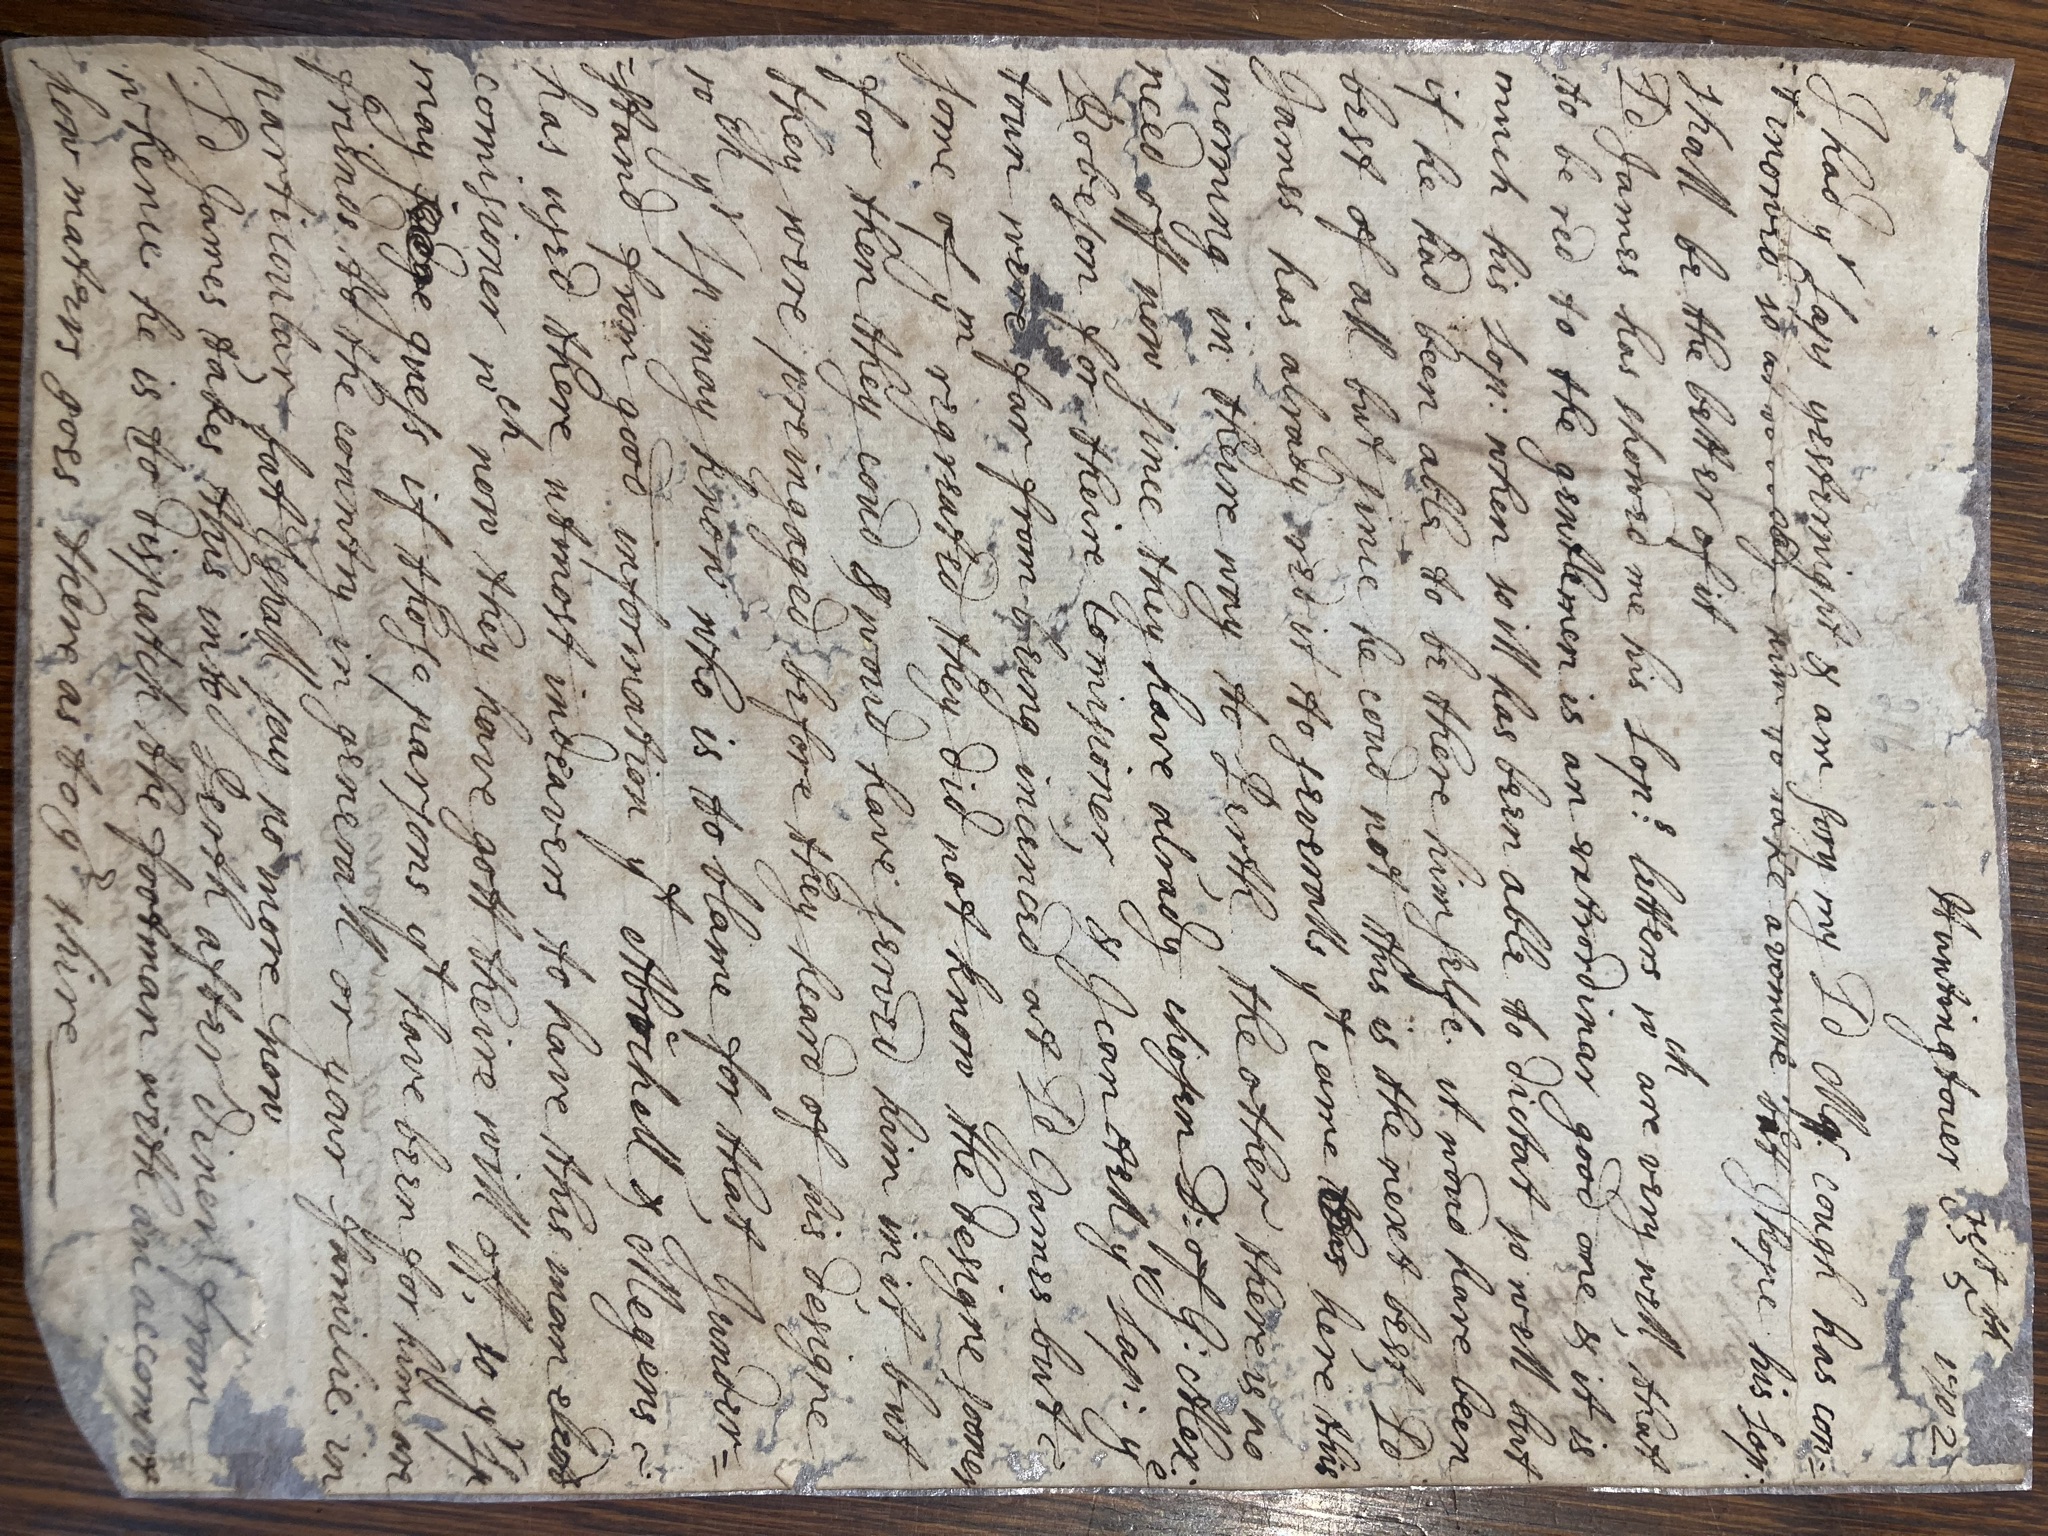 Huntingtouer oct 5th 1702
I had yr Laps yesternight & am sory my Ld Mqs. cough has con=
=tinowed so as to him to take a vomite but I hope his Lop:
shall be the better of it
Ld James has showed me his Lop:s letters wch are very well, that
to be red to the gentlemen is an extrordinar good one & it is
much his Lop: when so ill has been able to dictat so well but
if he had been able to be there himselfe it woud have been
best of all but since he coud not this is the next best, Ld
James has alrady red it to severalls yt came this here this
morning in theire way to Perth, the other there is no
need off now since they have alrady chosen D: of G: Alex:
Robeson for theire Comisioner, & I can tell yr Lap: ye
toun were far from being incenced at Ld James but
some of ym regreated they did not know the designe sooner
for then they coud & woud have served him in it, but
they were preingaged before they heard of his designe
wch yr Lp may know who is to blame for that, I under=
=stand from good information yt Abrochell & Megens
has used there utmost indeavers to have this man elected
comisioner wch now they have gott theire will off, so yr Lp
may judge guess if those parsons yt have been for him are
friends to the country in generall or your familie in
particoular, but I shall say no more now
Ld James takes this into Perth after diner from
whence he is to dispatch the footman with an accompt
how maters goes there as to ye shire